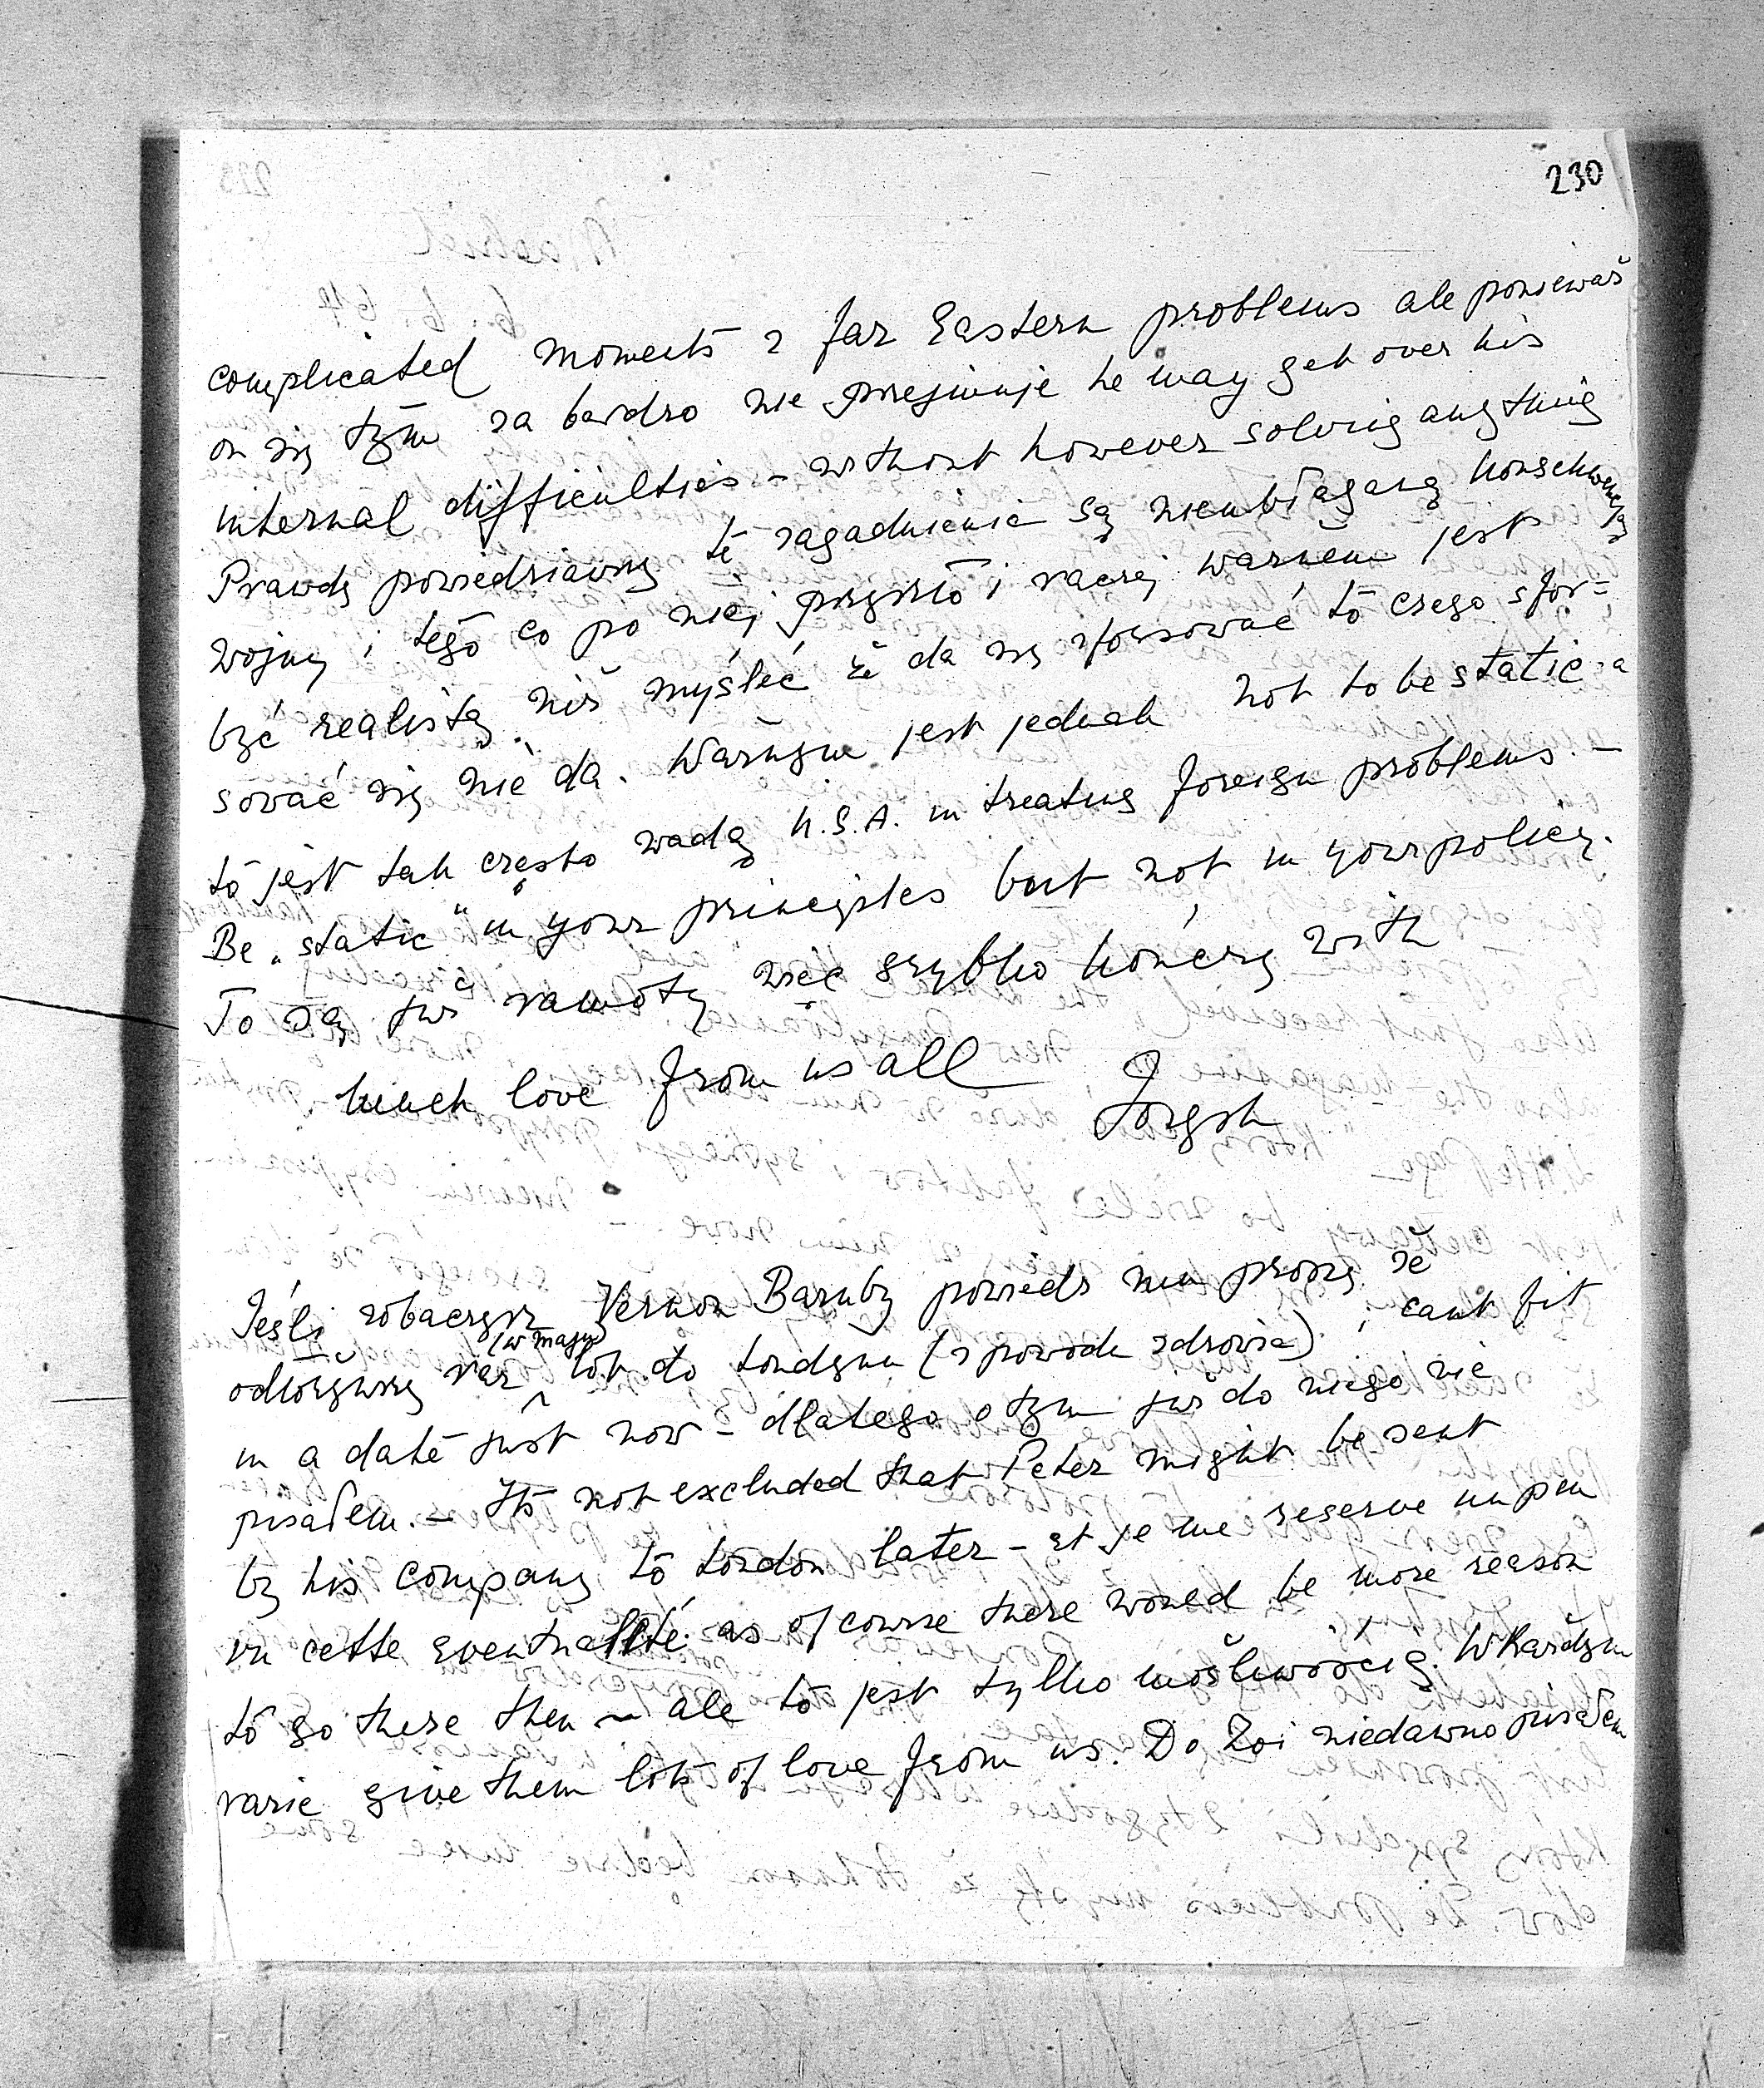 230
complicated moments z Far Eastern problems ale ponieważ
on się tym za bardzo nie przejmuje he may get over his
internal difficulties – without however solving anything
Prawdę powiedziawszy te zagadnienia są nieubłaganą konsekwencją
wojny i tego co po niej przyszło i raczej ważnem jest
być realistą niż myśleć że da się sforsować to czego sfor=
sować się nie da. Ważnym jest jednak not to be static a
to jest tak często wadą U.S.A. in treating foreign problems –
Be „static" in your principles but not in your policy.
To są już ramoty więc szybko kończę with
much love from us all
Jozysh
Jeśli zobaczysz Vernon Barnby powiedz mu proszę że
odłożywszy raz (w maju) lot do Londynu (z powodu zdrowia) i cant fit
in a date just now – dlatego o tym już do niego nie
pisałem. – Its not excluded that Peter might be sent
by his company to London later – et je me reserve un peu
vu cette eventualité as of course there would be more reason
to go there then – ale to jest tylko możliwością. W każdym
razie give them lots of love from us. Do Zoi niedawno pisałem